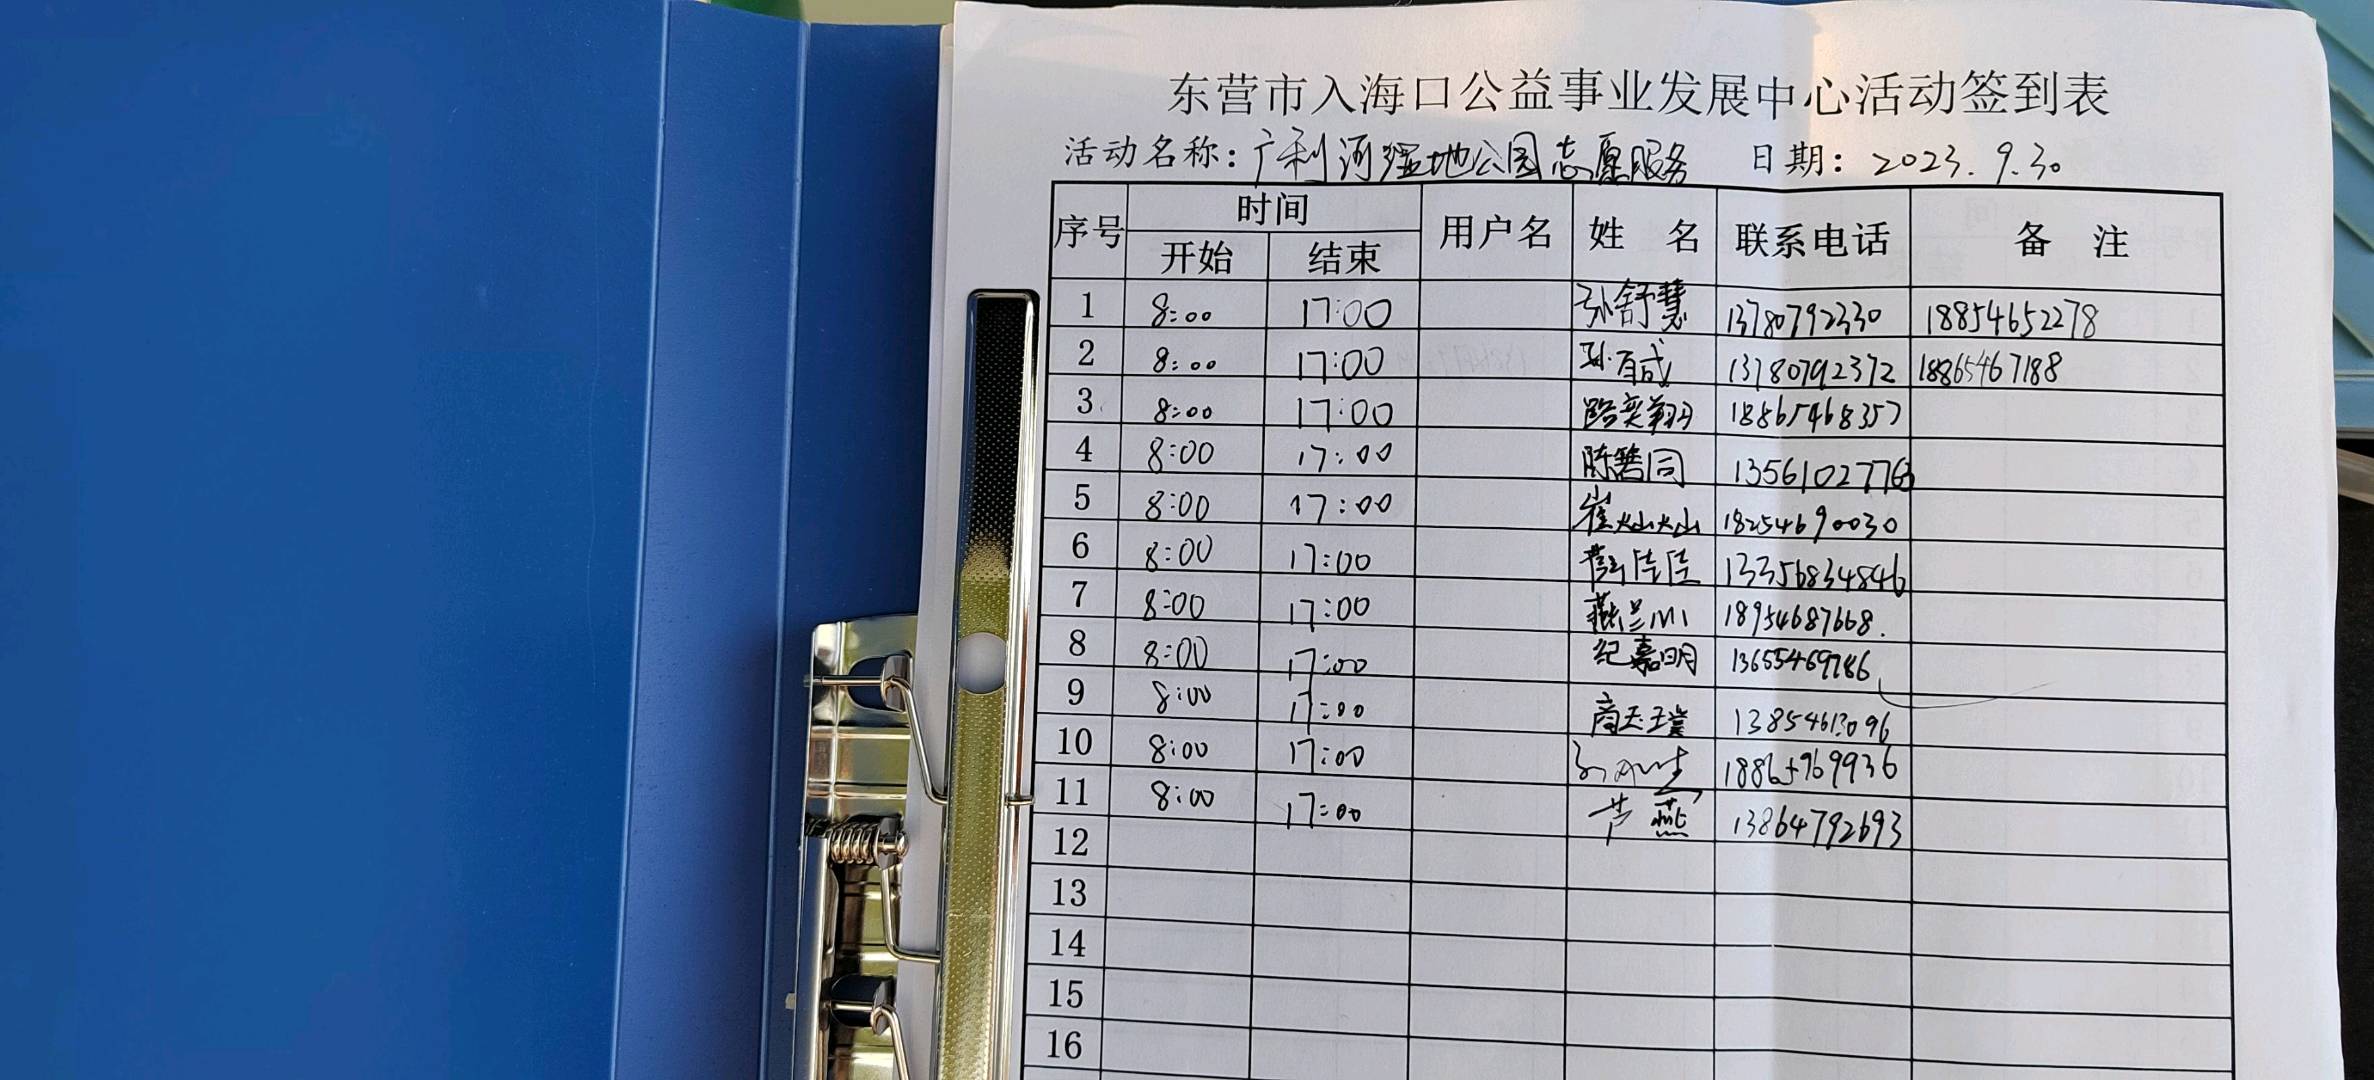 东营市入海口公益事业发展中心活动签到表
活动名称：广利河湿地公园志愿服务 日期：2023.9.30
序号 时间 用户名 姓 名 联系电话 备 注
开始 结束
1 8:00 17:00 孙舒慧 13780792330 18854652278
2 8:00 17:00 孙百成 13780792372 18865467188
3 8:00 17:00 路奕翔 18865468357
4 8:00 17:00 陈 同
5 8:00 17:00 崔灿灿 18254690030
6 8:00 17:00 佳佳 13356834846
7 8:00 17:00 燕兰川 18954687668.
8 8:00 17:00 纪嘉明 13655469786
9 8:00 17:00 商玉 13854613096
10 8:00 17:00
11 8:00 17:00 芦燕 13864792693
12
13
14
15
16